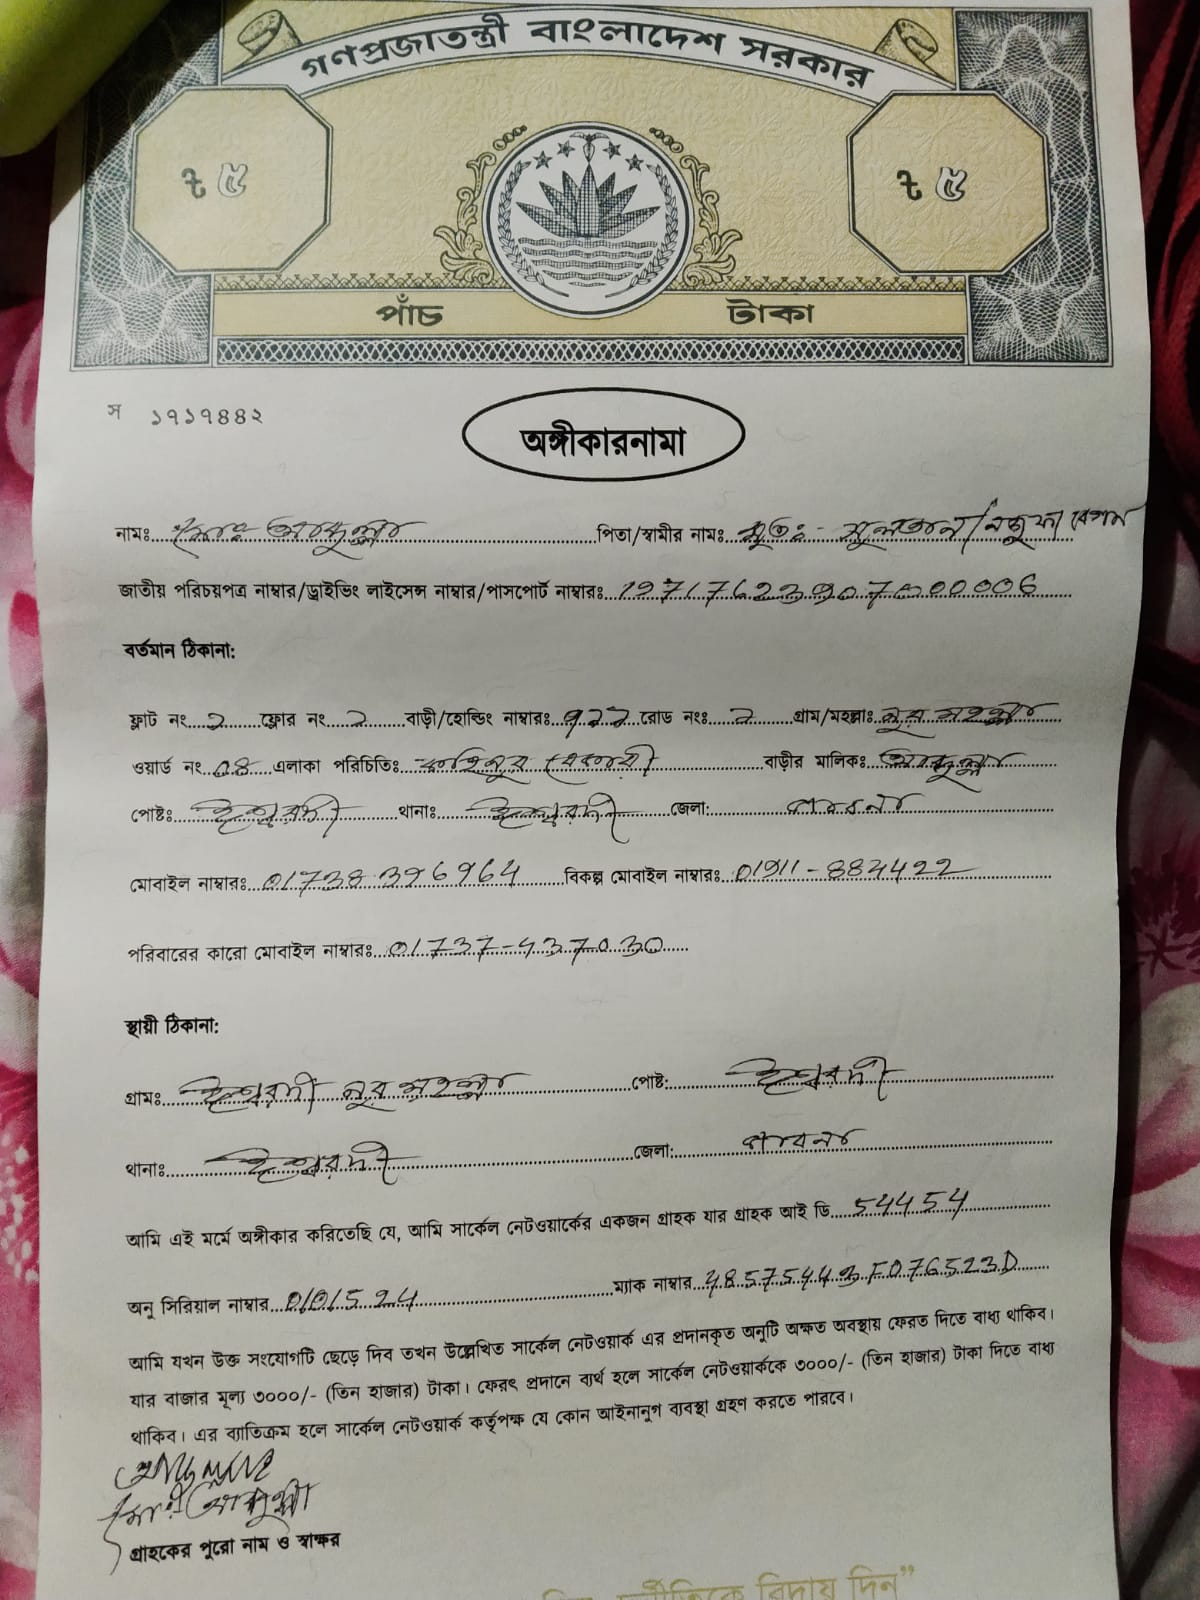 গণপ্রজাতন্ত্রী বাংলাদেশ সরকার
ট ৫ ট ৫
পাঁচ টাকা
স ১৭১৭৪৪২
অঙ্গীকারনামা
নামঃ মোঃ আবদুল্লাহ পিতা/স্বামীর নামঃ মৃতঃ- সুলতান/ বেগম
জাতীয় পরিচয়পত্র নাম্বার/ড্রাইভিং লাইসেন্স নাম্বার/পাসপোর্ট নাম্বারঃ
বর্তমান ঠিকানা:
ফ্লাট নং ফ্লোর নং বাড়ী/হোল্ডিং নাম্বারঃ রোড নংঃ গ্রাম/মহল্লাঃ নূর মহল্লা
ওয়ার্ড নং 08 এলাকা পরিচিতিঃ বাড়ীর মালিকঃ আবদুল্লাহ
পোষ্টঃ ঈশ্বরদী থানাঃ ঈশ্বরদী জেলা: পাবনা
মোবাইল নাম্বারঃ 01738396964 বিকল্প মোবাইল নাম্বারঃ 01911-884422
পরিবারের কারো মোবাইল নাম্বারঃ 01737-437030
স্থায়ী ঠিকানা:
গ্রামঃ ঈশ্বরদী নূর মহল্লা পোষ্ট: ঈশ্বরদী
থানাঃ ঈশ্বরদী জেলা: পাবনা
আমি এই মর্মে অঙ্গীকার করিতেছি যে, আমি সার্কেল নেটওয়ার্কের একজন গ্রাহক যার গ্রাহক আই ডি 54454
অনু সিরিয়াল নাম্বার 0101524 ম্যাক নাম্বার
আমি যখন উক্ত সংযোগটি ছেড়ে দিব তখন উল্লেখিত সার্কেল নেটওয়ার্ক এর প্রদানকৃত অনুটি অক্ষত অবস্থায় ফেরত দিতে বাধ্য থাকিব।
যার বাজার মূল্য ৩০০০/- (তিন হাজার) টাকা। ফেরৎ প্রদানে ব্যর্থ হলে সার্কেল নেটওয়ার্ককে ৩০০০/- (তিন হাজার) টাকা দিতে বাধ্য
থাকিব। এর ব্যাতিক্রম হলে সার্কেল নেটওয়ার্ক কর্তৃপক্ষ যে কোন আইনানুগ ব্যবস্থা গ্রহণ করতে পারবে।
আবদুল্লাহ
মোঃ আবদুল্লাহ
গ্রাহকের পুরো নাম ও স্বাক্ষর
দুর্নীতিকে বিদায় দিন”